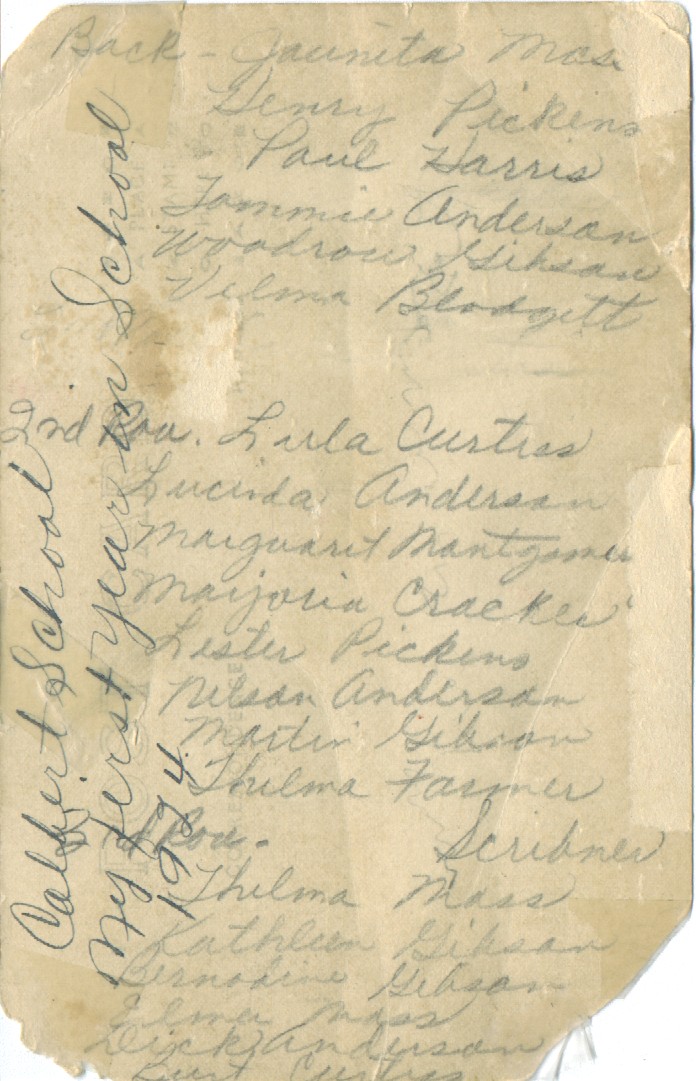 Back - Jaunita Moss
Henry Pickens
Paul Harris
Tommie Anderson
Woodrow Gibson
Velma Blodgett
2nd Row. Lula Curtiss
Lucinda Anderson
Marguarit Montgomer
Marjoria Cracker
Lester Pickens
Nelson Anderson
Martin Gibson
Thelma Farmer
Row. Scribner
Thelma Moss
Kathleen Gibson
Bernadine Gibson
Elmer Moss
Dick Anderson
Burt Curtiss
Calbert School
My first year in School
1924